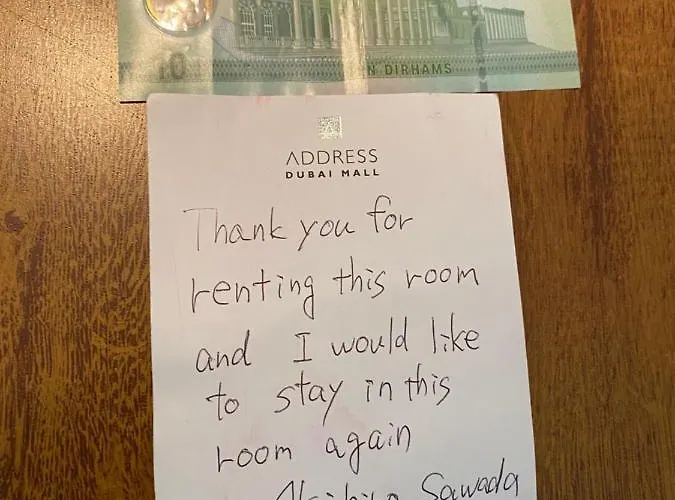 10
N DIRHAMS
ADDRESS
DUBAI MALL
Thank you for
renting this room
and I would like
to stay in this
room again
Sawada